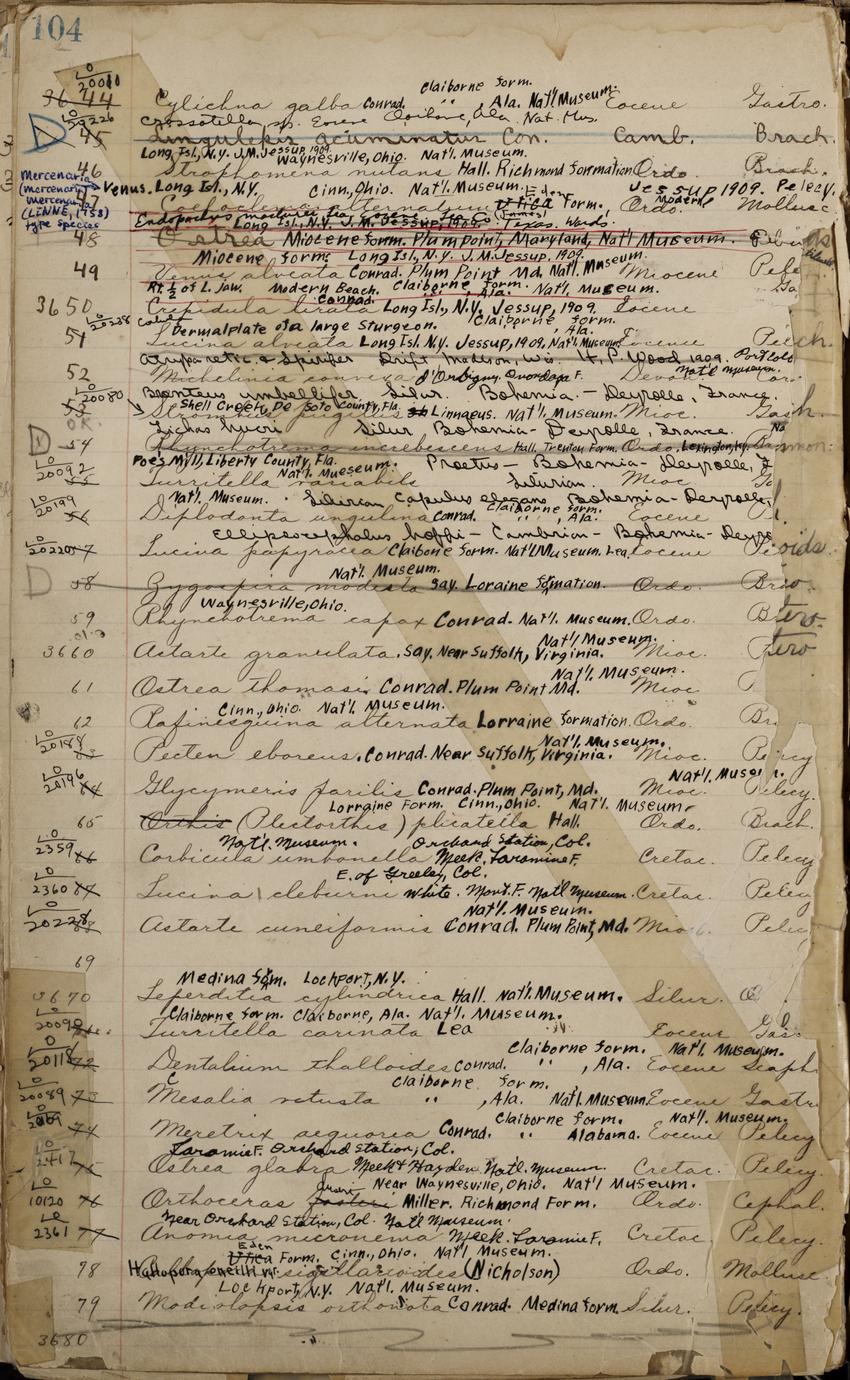 104
LO
20010
Claiborne form.
3644 Cylichna galba Conrad. " , Ala. Nat'l Museum Eocene Gastro.
LO
20226
Crassatella, sp. Eocene Claiborne, Ala. Nat. Mus.
D 45 Lingulepis acuminatus Con. Camb. Brach.
Long Isl., N.Y. J.M. Jessup, 1909. Waynesville, Ohio. Nat'l. Museum.
46 Strophomena nutans Hall. Richmond formation Ordo. Brach.
Mercenaria
(mercenaria
mercenaria
(LINNE, 1758)
type species
Venus. Long Isl., N.Y. Cinn, Ohio. Nat'l. Museum. Eden Jessup 1909. Pelecy.
47 alternatum Utica Form. Ordo. Modern Mollusc
Long Isl., N.Y. J.M. Jessup, 1909. Texas. Wards.
48 Ostrea Miocene form. Plum point, Maryland, Nat'l Museum.
Miocene form. Long Isl., N.Y. J.M. Jessup. 1909.
49 Venus alveata Conrad. Plum Point Md. Nat'l. Museum Miocene Pele
Rt. ½ of L. Jaw. Modern Beach. Claiborne form. , Ala. Nat'l. Museum
3650 Crepidula lirata Conrad. Long Isl., N.Y. Jessup, 1909. Eocene Ga
LO
20238
Dermalplate of a large Sturgeon. Claiborne form. , Ala.
51 Lucina alveata Long Isl. N.Y. Jessup, 1909, Nat'l Museum Eocene Pelech.
Atrypa retic. & Spirifer Drift Madison, Wis. H.P. Wood 1909.
52 Michelinia convexa d'Orbigny. Onondaga F. Nat'l museum. Devo. Cor.
LO
20080
Bronteus umbellifer, Silur. Bohemia. - Deyrolle, France.
Shell Creek, De Soto County, Fla.
53 Linnaeus. Nat'l. Museum. Mioc. Gash.
O.K.
Lichas hueri Silur Bohemia - Deyrolle, France.
D 54 Rhynchotrema increbescens Hall. Trenton Form. Ordo. Lexington, Ky.
Poe's Myll, Liberty County, Fla. Nat'l Museum. Proetus - Bohemia - Deyrolle, F
LO
20092
Turritella variabilis Silurian. Mioc Ga
Nat'l. Museum. Silurian Capulus elegans Bohemia - Deyrolle,
LO
20199
56 Diplodonta ungulina Conrad. Claiborne form. " , Ala. Eocene
Ellipsocephalus hoffi - Cambrian - Bohemia - Deyro
LO
20220 57 Lucina papyracea Claiborne form. Nat'l Museum. Lea. Eocene
Nat'l. Museum.
D 58 Zygospira modesta Say. Loraine formation. Ordo. Brac
Waynesville, Ohio.
59 Rhynchotrema capax Conrad. Nat'l. Museum. Ordo.
Nat'l Museum.
3660 Astarte granulata. Say. Near Suffolk, Virginia. Mioc.
Nat'l Museum.
61 Ostrea thomasi Conrad. Plum Point Md. Mioc
Cinn., Ohio. Nat'l. Museum.
62 Rafinesquina alternata Lorraine formation. Ordo. Br
LO
20188
Nat'l. Museum.
63 Pecten eboreus. Conrad. Near Suffolk, Virginia. Mioc. Pelecy
LO
20196
Nat'l. Museum.
64 Glycymeris parilis Conrad. Plum Point, Md. Mioc. Pelecy.
Lorraine Form. Cinn., Ohio. Nat'l. Museum.
65 Orthis (Plectorthis) plicatella Hall. Ordo. Brach.
LO
2359
Nat'l. Museum. Orchard Station, Col.
66 Corbicula umbonella Meek. Laramie F. Cretac. Pelecy
E. of Greeley, Col.
LO
2360 67 Lucina cleburni White. Mont. F. Nat'l Museum. Cretac. Pelecy
LO
20228
Nat'l. Museum.
68 Astarte cuneiformis Conrad. Plum Point, Md. Mioc. Pelec
69
Medina form. Lockport, N.Y.
3670 Leperditia cylindrica Hall. Nat'l. Museum. Silur. O
Claiborne form. Claiborne, Ala. Nat'l. Museum.
LO
20090
Turritella carinata Lea Eocene Gas.
LO
20118
Claiborne form. Nat'l. Museum.
72 Dentalium thalloides Conrad. " , Ala. Eocene Scaph.
LO
20089
Claiborne form.
73 Mesalia vetusta C " , Ala. Nat'l. Museum. Eocene Gastr.
LO
Claiborne form. Nat'l. Museum.
74 Meretrix aequorea Conrad. " Alabama. Eocene Pelecy
Laramie F. Orchard Station, Col.
LO
2417 75 Ostrea glabra Meek & Hayden. Nat'l. Museum. Cretac. Pelecy.
Near Waynesville, Ohio. Nat'l Museum.
LO
10120 76 Orthoceras fosteri Miller. Richmond Form. Ordo. Cephal.
Near Orchard Station, Col. Nat'l Museum.
LO
2361 77 Anomia micronema Meek. Laramie F. Cretac. Pelecy.
Eden
Utica Form. Cinn., Ohio. Nat'l Museum.
78 sigillarioides (Nicholson) Ordo. Mollusc.
Lockport, N.Y. Nat'l. Museum.
79 Modiolopsis orthonota Conrad. Medina form. Silur. Pelecy.
3680